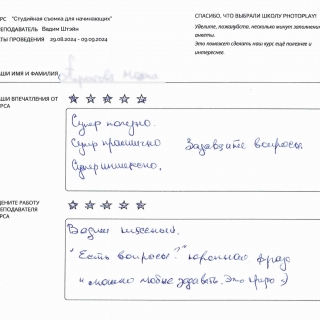 РС "Студийная съемка для начинающих"
ЕПОДАВАТЕЛЬ Вадим Штэйн
ТЫ ПРОВЕДЕНИЯ 29.08.2024 - 09.09.2024
СПАСИБО, ЧТО ВЫБРАЛИ ШКОЛУ PHOTOPLAY!
Уделите, пожалуйста, несколько минут заполнению
анкеты.
Это поможет сделать наш курс ещё полезнее и
интереснее.
АШИ ИМЯ И ФАМИЛИЯ
АШИ ВПЕЧАТЛЕНИЯ ОТ
РСА
Супер полезно.
Супер практично Задавайте вопросы
Супер интенсивно.
ЕНИТЕ РАБОТУ
ЕПОДАВАТЕЛЯ
РСА
Вадим
"Есть вопросы?" коронная фраза
и можно любые задавать. Это